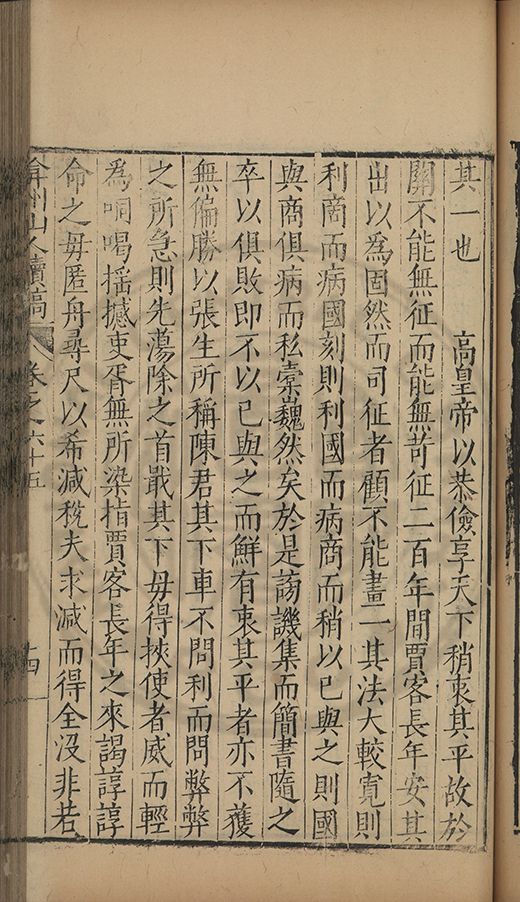 其一也　　高皇帝以恭儉享天下稍衷其平故於
關不能無征而能無苛征二百年間賈客長年安其
出以為固然而司征者顧不能畫一其法大較寬則
利商而病國刻則利國而病商而稍以已與之則國
與商俱病而私橐巍然矣於是謗譏集而簡書隨之
卒以俱敗即不以已與之而鮮有衷其平者亦不獲
無偏勝以張生所稱陳君其下車不問利而問弊弊
之所急則先蕩除之首戢其下毋得挾使者威而輕
為恫喝摇撼吏胥無所染指賈客長年之來謁諄諄
命之毋匿舟尋尺以希減稅夫求減而得全沒非若
弇州山人續稿　卷之六十五　十四